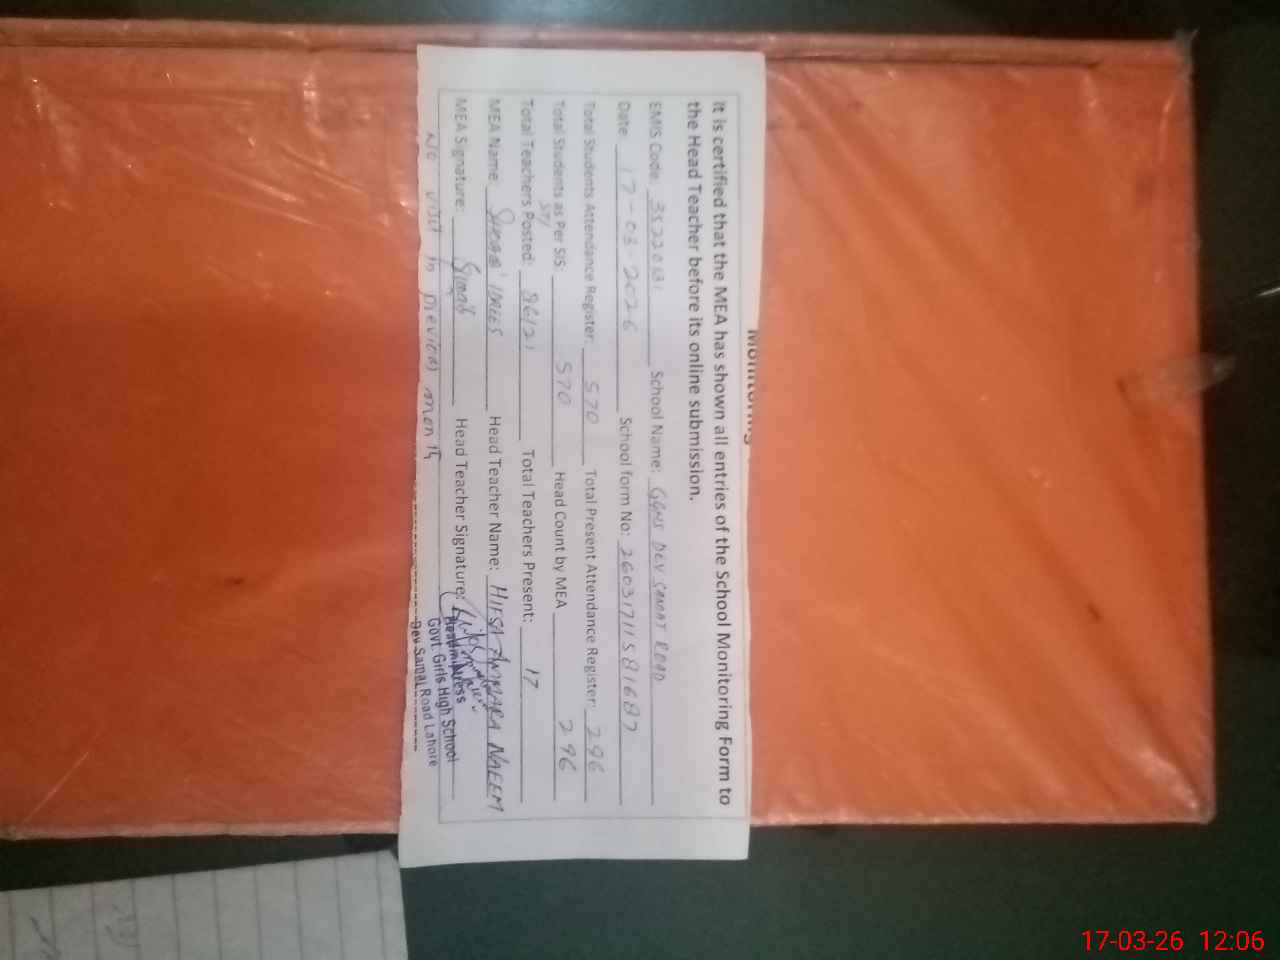 Monitoring
It is certified that the MEA has shown all entries of the School Monitoring Form to
the Head Teacher before its online submission.
EMIS Code: 35220131 School Name: GGHS DEV SAMAJ ROAD
Date: 17-03-2026 School form No: 26031711581687
Total Students Attendance Register: 570 Total Present Attendance Register: 296
Total Students as Per SIS: 570 Head Count by MEA 296
571
Total Teachers Posted: 26/21 Total Teachers Present: 17
MEA Name: IDREES Head Teacher Name: HIFSA AMMARA NAEEM
MEA Signature: Head Teacher Signature:
No visit in previous month
Headmistress
Govt. Girls High School
Dev Samaj Road Lahore
17-03-26 12:06